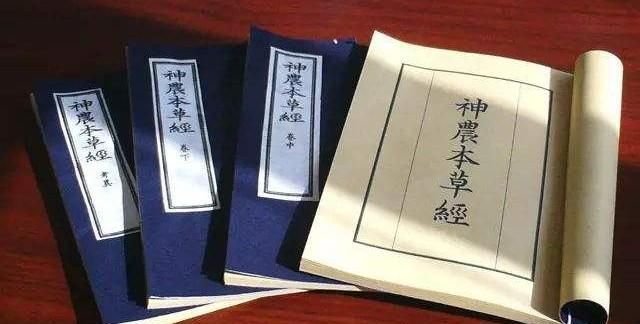 神農本草經
考異
神農本草經
卷下
神農本草經
卷中
神農本草經